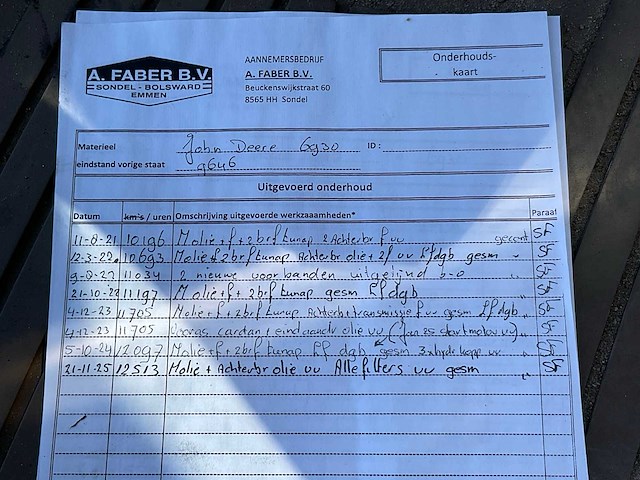 A. FABER B.V.
SONDEL - BOLSWARD
EMMEN
AANNEMERSBEDRIJF
A. FABER B.V.
Beuckenswijkstraat 60
8565 HH Sondel
Onderhouds-
kaart
Materieel John Deere 6930 ID:
eindstand vorige staat 9646
Uitgevoerd onderhoud
Datum km's / uren Omschrijving uitgevoerde werkzaaamheden* Paraaf
10.196 Molie + f + 2brf tunap Achterbr f vv
12-3-22 10.693 Molie + f 2brf tunap Achterbr olie + 2f vv Lfdgb gesm
11034 2 nieuwe voorbanden uitgelijnd
21-10-22 11.197 Molie + f + 2brf tunap gesm Lfdgb
4-12-23 11.705 Molie + f + 2brf tunap vv gesm Lfdgb
4-12-23 11.705 cardan + eindaandr olie vv
5-10-24 12.097 Molie + f + 2brf tunap Lf dgb gesm
21-11-25 12.513 Molie + Achterbr olie vv Alle filters vv gesm